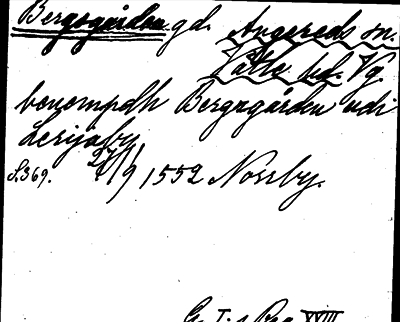 Bergsgården gd. Angereds sn.
Vättle hd. Vg.
benempdh Bergxgården udi
Lerijeby
S. 369. 27/9 1552 Norrby.
G. I:s Reg. XXIII